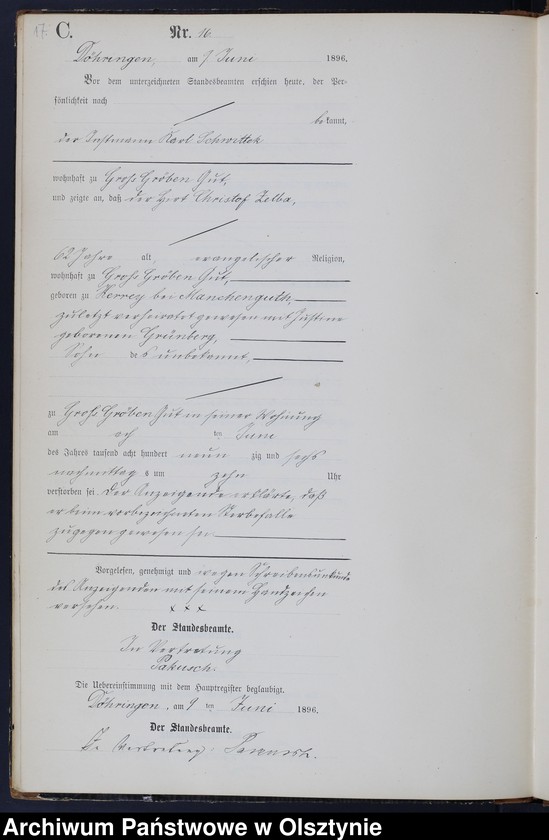 17. C.
Nr. 16
Döhringen, am 9 Juni 1896.
Vor dem unterzeichneten Standesbeamten erschien heute, der Per-
sönlichkeit nach
bekannt,
der Instmann Karl Schwittek
wohnhaft zu Groß Gröben Gut,
und zeigte an, daß der Hirt Christof Zelba,
62 Jahre alt, evangelischer Religion,
wohnhaft zu Groß Gröben Gut,
geboren zu bei Manchenguth,
zuletzt verheiratet gewesen mit Justine
geborenen Grünberg,
Sohn des unbekannt,
zu Groß Gröben Gut in seiner Wohnung
am ten Juni
des Jahres tausend acht hundert neun zig und sechs
nachmittags um zehn Uhr
verstorben sei. Der Anzeigende erklärte, daß
er beim vorbezeichneten Sterbefalle
zugegen gewesen sei
Vorgelesen, genehmigt und wegen Schreibensunkunde
des Anzeigenden mit seinem Handzeichen
versehen. x x x
Der Standesbeamte.
In Vertretung
Die Uebereinstimmung mit dem Hauptregister beglaubigt.
Döhringen, am 9 ten Juni 1896.
Der Standesbeamte.
In Vertretung
Archiwum Państwowe w Olsztynie